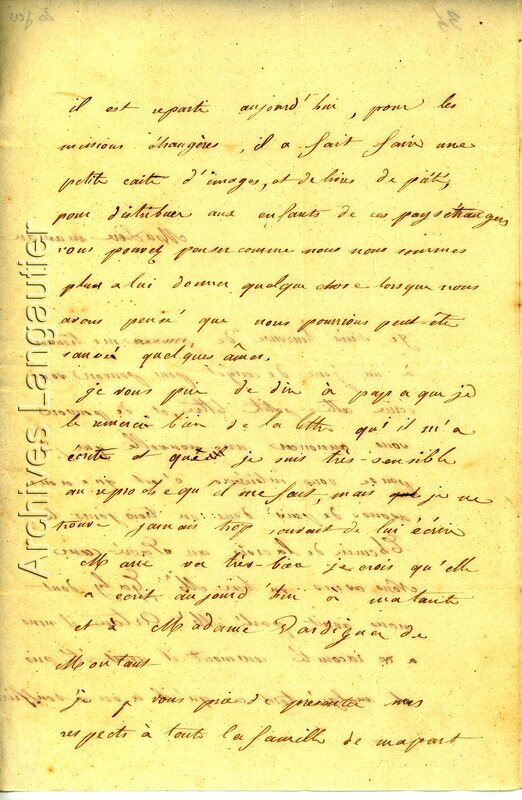 il est reparti aujourd'hui, pour les
missions étrangères, il a fait faire une
petite caite d'images, et de livres de piété,
pour distribuer aux enfants de ces pays étrangers
vous pouvez penser comme nous nous sommes
plu a lui donner quelque chose lorsque nous
avons pensé que nous pourrions peut-être
sauver quelques âmes.
je vous prie de dire à papa que je
le remercie bien de la lettre qu'il m'a
écrite et que je suis très-sensible
au reproche qu'il me fait, mais je ne
trouve jamais trop souvent de lui écrire
Marie va très-bien je crois qu'elle
a écrit aujourd'hui à ma tante
et à Madame de
Montaut
je vous prie de présenter mes
respects à toute la famille de ma part
Archives Langautier